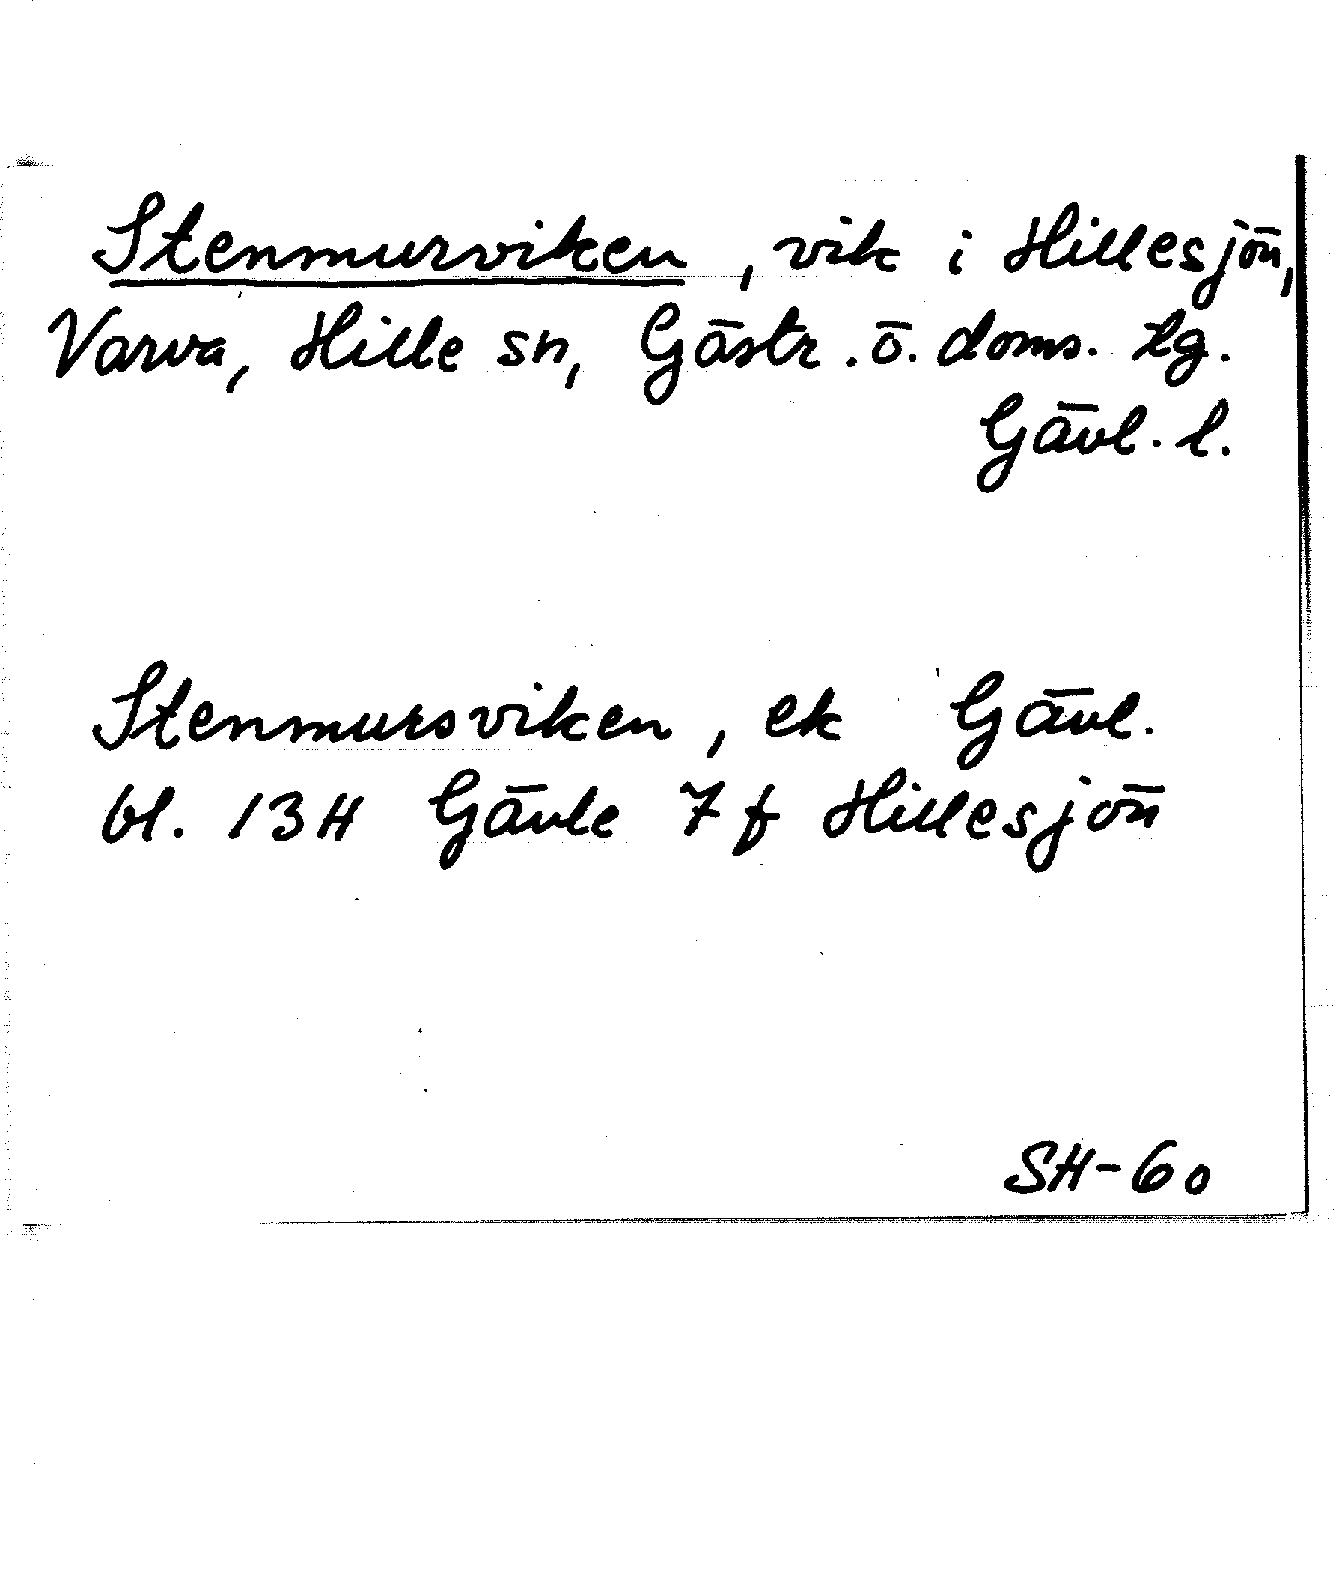 Stenmurviken, vik i Hillesjön,
Varva, Hille sn, Gästr. ö. doms. tg.
Gävl. l.
Stenmursviken, ek Gävl.
bl. 13H Gävle 7f Hillesjön
SH-60